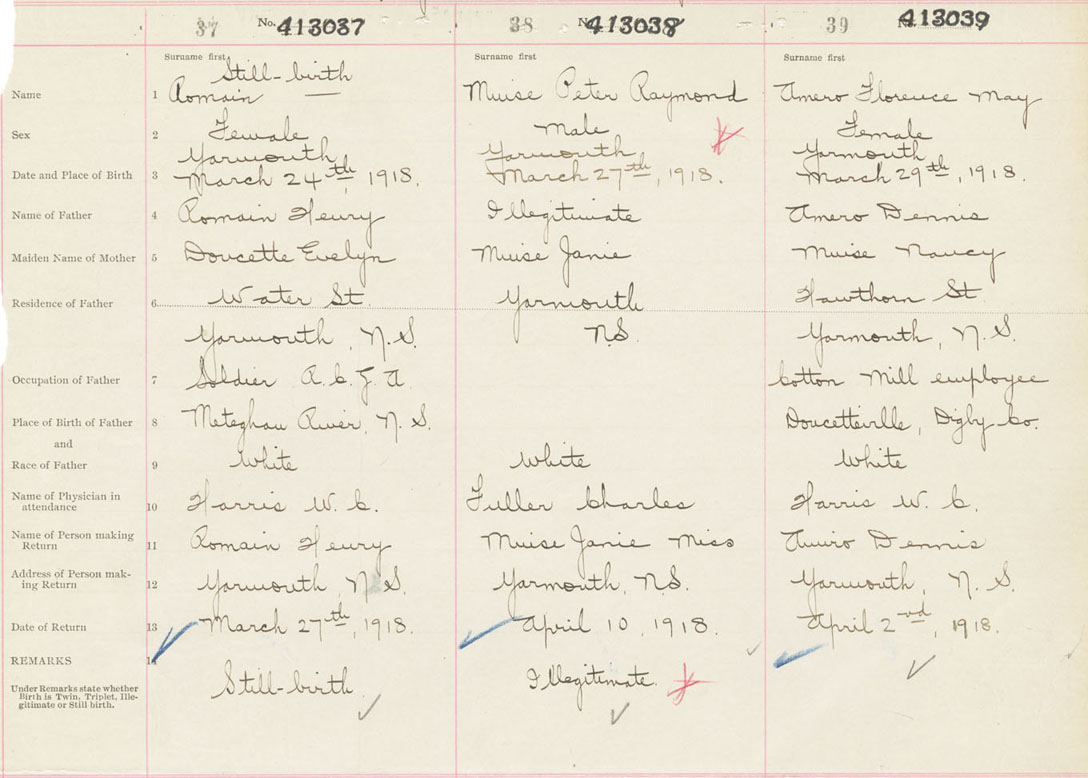 37 No. 413037 38 No. 413038 39 No. 413039
Surname first Surname first Surname first
Still-birth
Name 1 Romain Muise Peter Raymond Amero Florence May
Sex 2 Female Male Female
Yarmouth Yarmouth Yarmouth
Date and Place of Birth 3 March 24th, 1918. March 27th, 1918. March 29th, 1918.
Name of Father 4 Romain Henry Illegitimate Amero Dennis
Maiden Name of Mother 5 Doucette Evelyn Muise Janie Muise Nancy
Residence of Father 6 Water St. Yarmouth Hawthorn St
Yarmouth, N.S. N.S. Yarmouth, N.S.
Occupation of Father 7 Soldier A.C.G.A Cotton Mill employee
Place of Birth of Father 8 Meteghan River, N.S. Doucetteville, Digby Co.
and
Race of Father 9 White White White
Name of Physician in
attendance 10 Harris W. C. Fuller Charles Harris W. C.
Name of Person making
Return 11 Romain Henry Muise Janie Miss Amiro Dennis
Address of Person mak-
ing Return 12 Yarmouth, N.S. Yarmouth, N.S. Yarmouth, N.S.
Date of Return 13 March 27th, 1918. April 10, 1918. April 2nd, 1918.
REMARKS 14
Under Remarks state whether
Birth is Twin, Triplet, Ille-
gitimate or Still birth.
Still-birth Illegitimate.